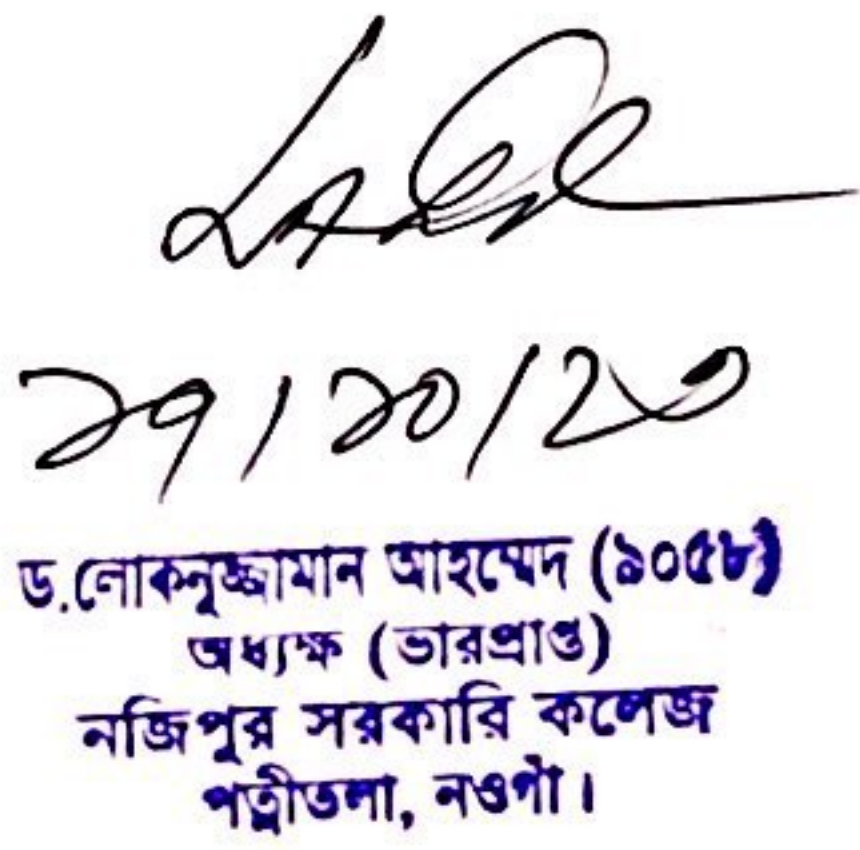 ১৭/১০/২৩
ড.লোকনুজ্জামান আহম্মেদ (১০৫৮)
অধ্যক্ষ (ভারপ্রাপ্ত)
নজিপুর সরকারি কলেজ
পত্নীতলা, নওগাঁ।